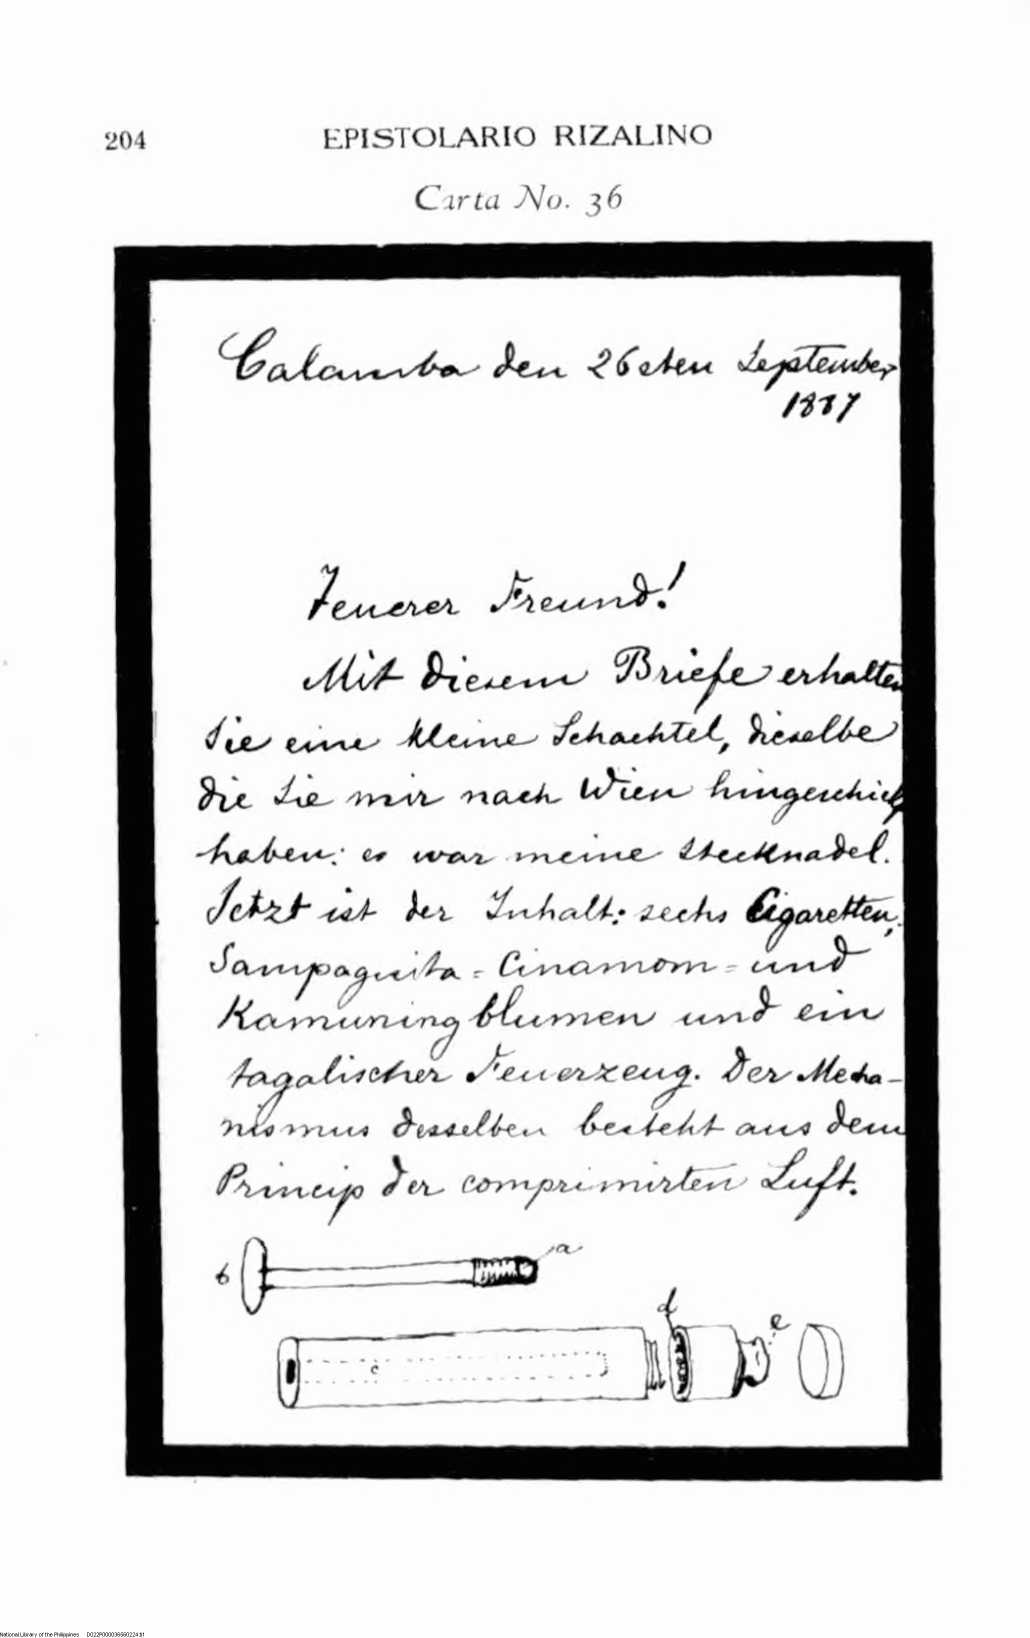 204
EPISTOLARIO RIZALINO
Carta No. 36
Calamba den 26sten September
1887
Teuerer Freund!
Mit diesem Briefe erhalten
Sie eine kleine Schachtel, dieselbe
die Sie mir nach Wien hingeschick
haben: es war meine Stecknadel.
Jetzt ist der Inhalt: sechs Cigaretten,
Sampaguita = Cinamom = und
Kamuning blumen und ein
tagalischer Feuerzeug. Der Mecha-
nismus desselben besteht aus dem
Princip der comprimirten Luft.
a
b
d
e
c
National Library of the Philippines